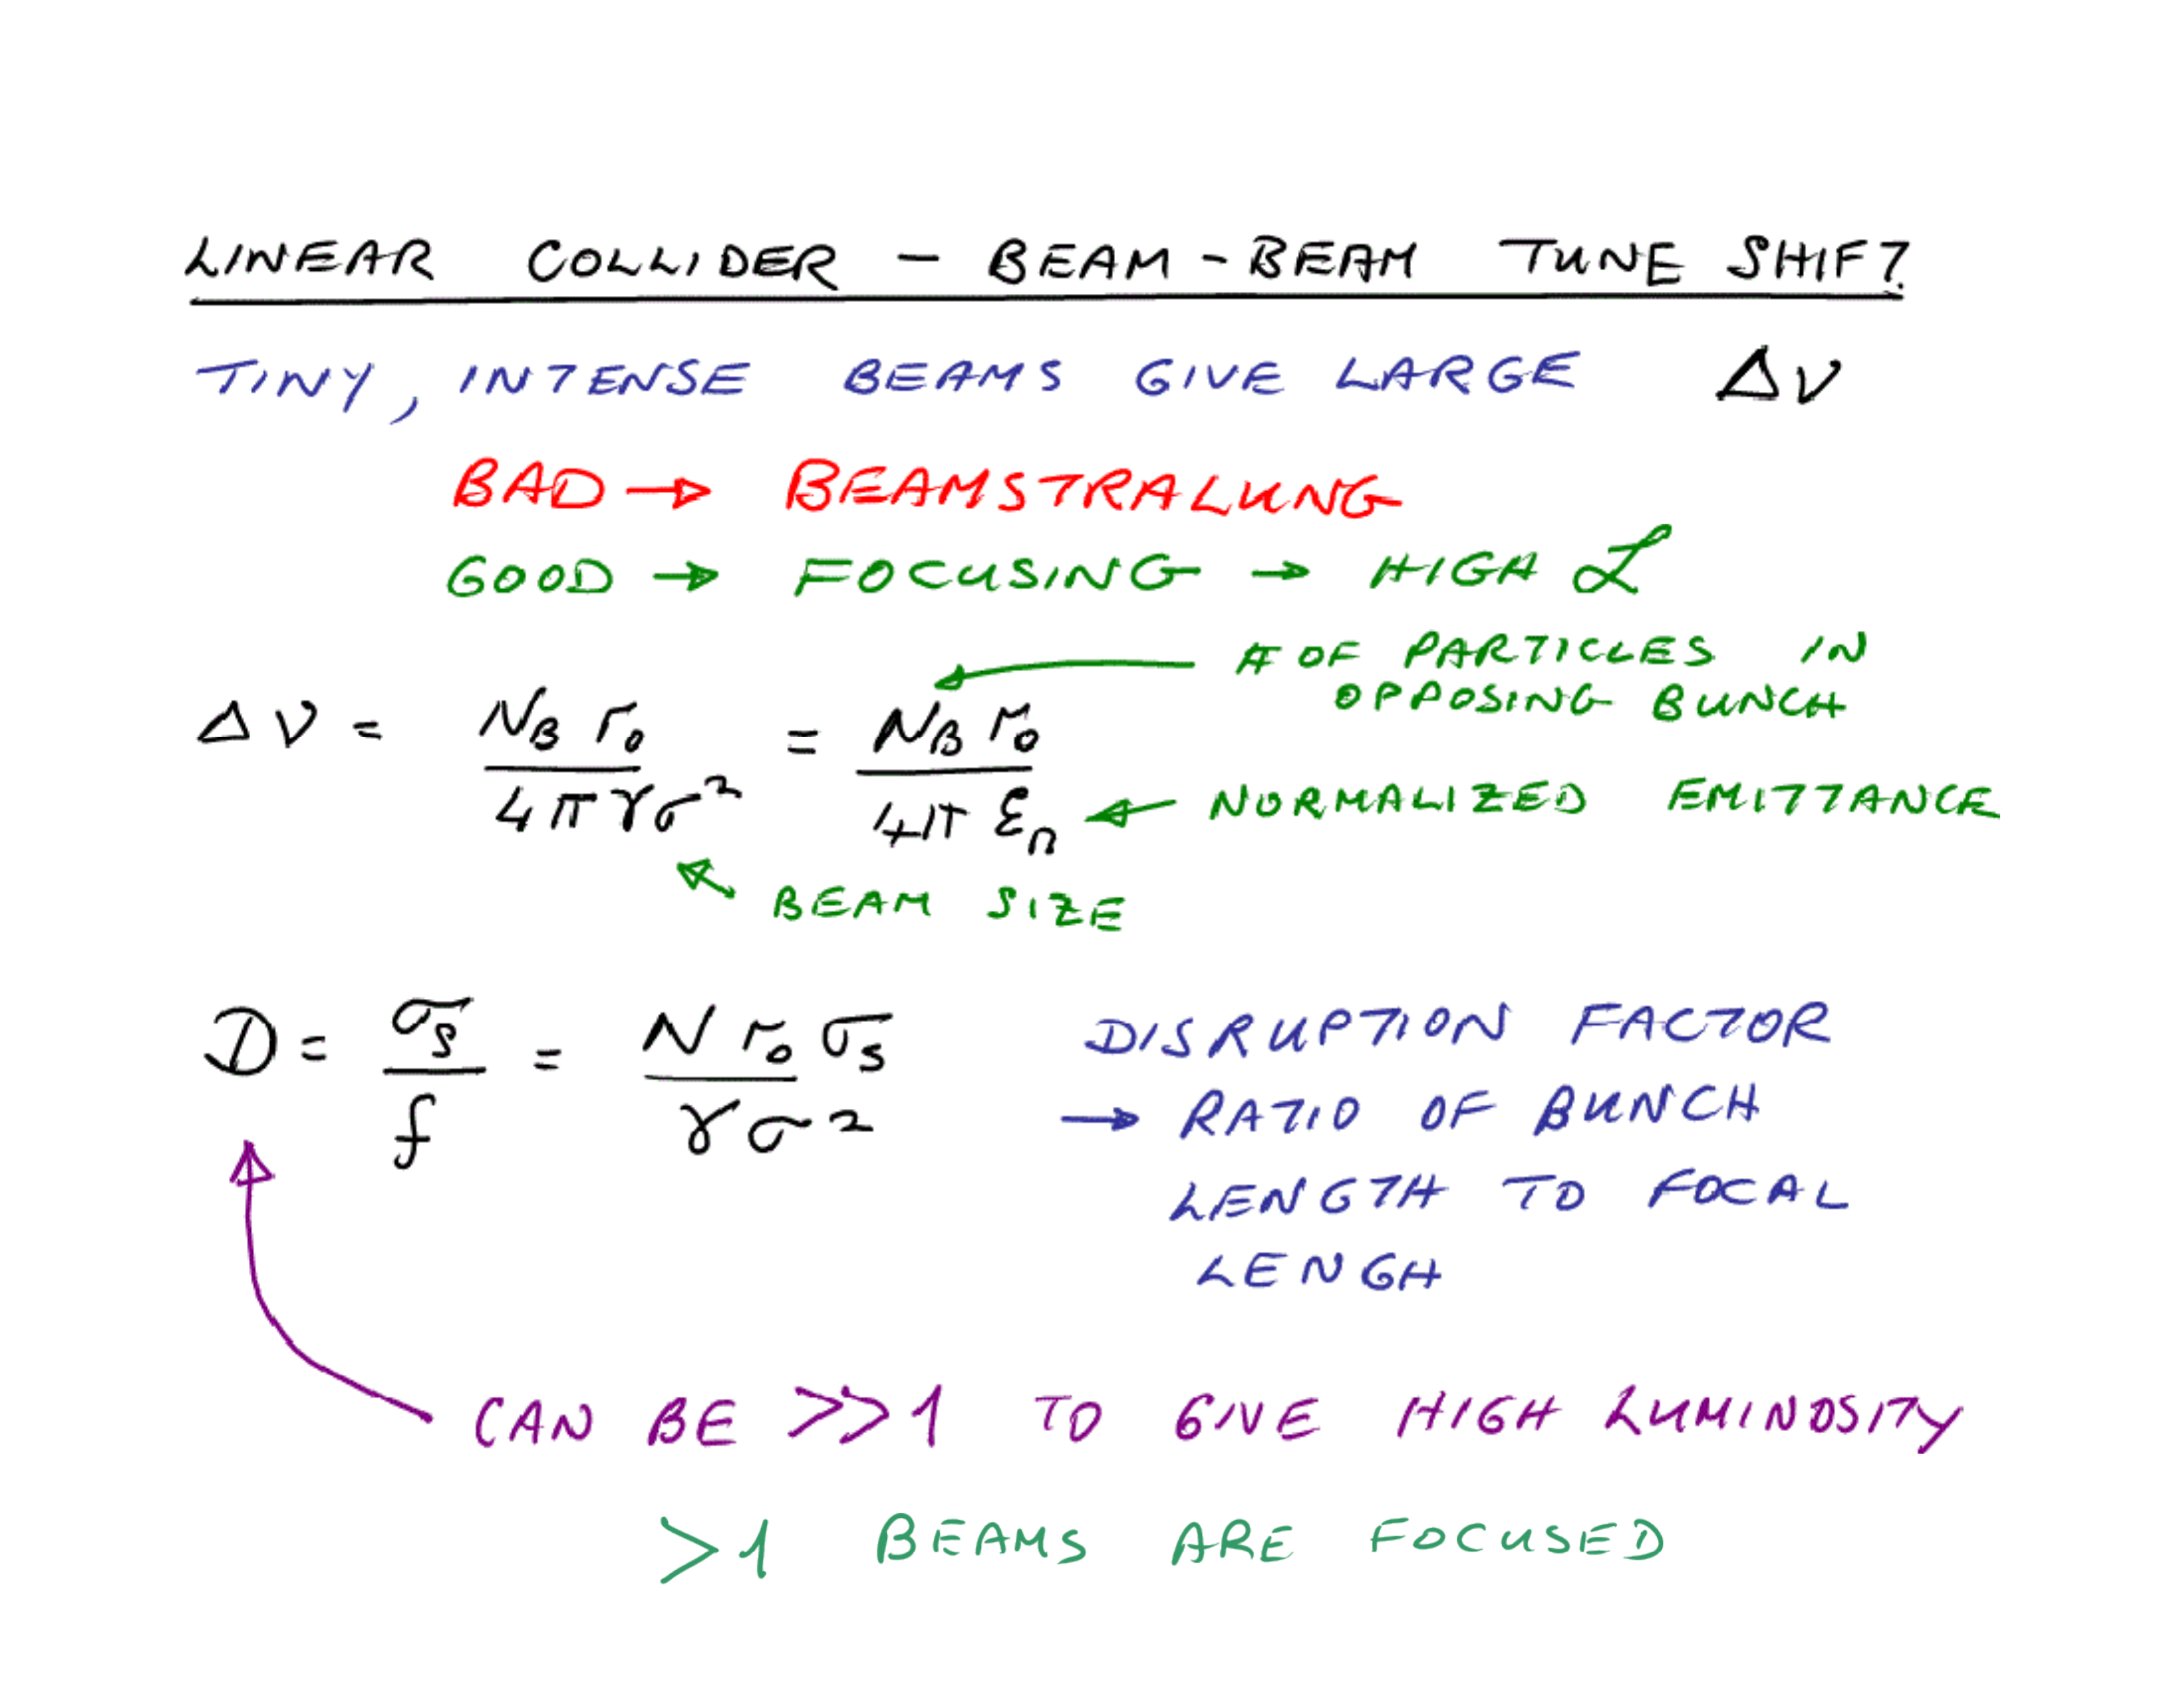 LINEAR COLLIDER - BEAM-BEAM TUNE SHIFT
TINY, INTENSE BEAMS GIVE LARGE Δν
BAD → BEAMSTRALUNG
GOOD → FOCUSING → HIGH ℒ
# OF PARTICLES IN
OPPOSING BUNCH
Δν = N_B r_0 / 4πγσ² = N_B r_0 / 4π ε_n ← NORMALIZED EMITTANCE
BEAM SIZE
D = σ_s / f = N r_0 σ_s / γσ² DISRUPTION FACTOR
→ RATIO OF BUNCH
LENGTH TO FOCAL
LENGH
CAN BE >>1 TO GIVE HIGH LUMINOSITY
>1 BEAMS ARE FOCUSED